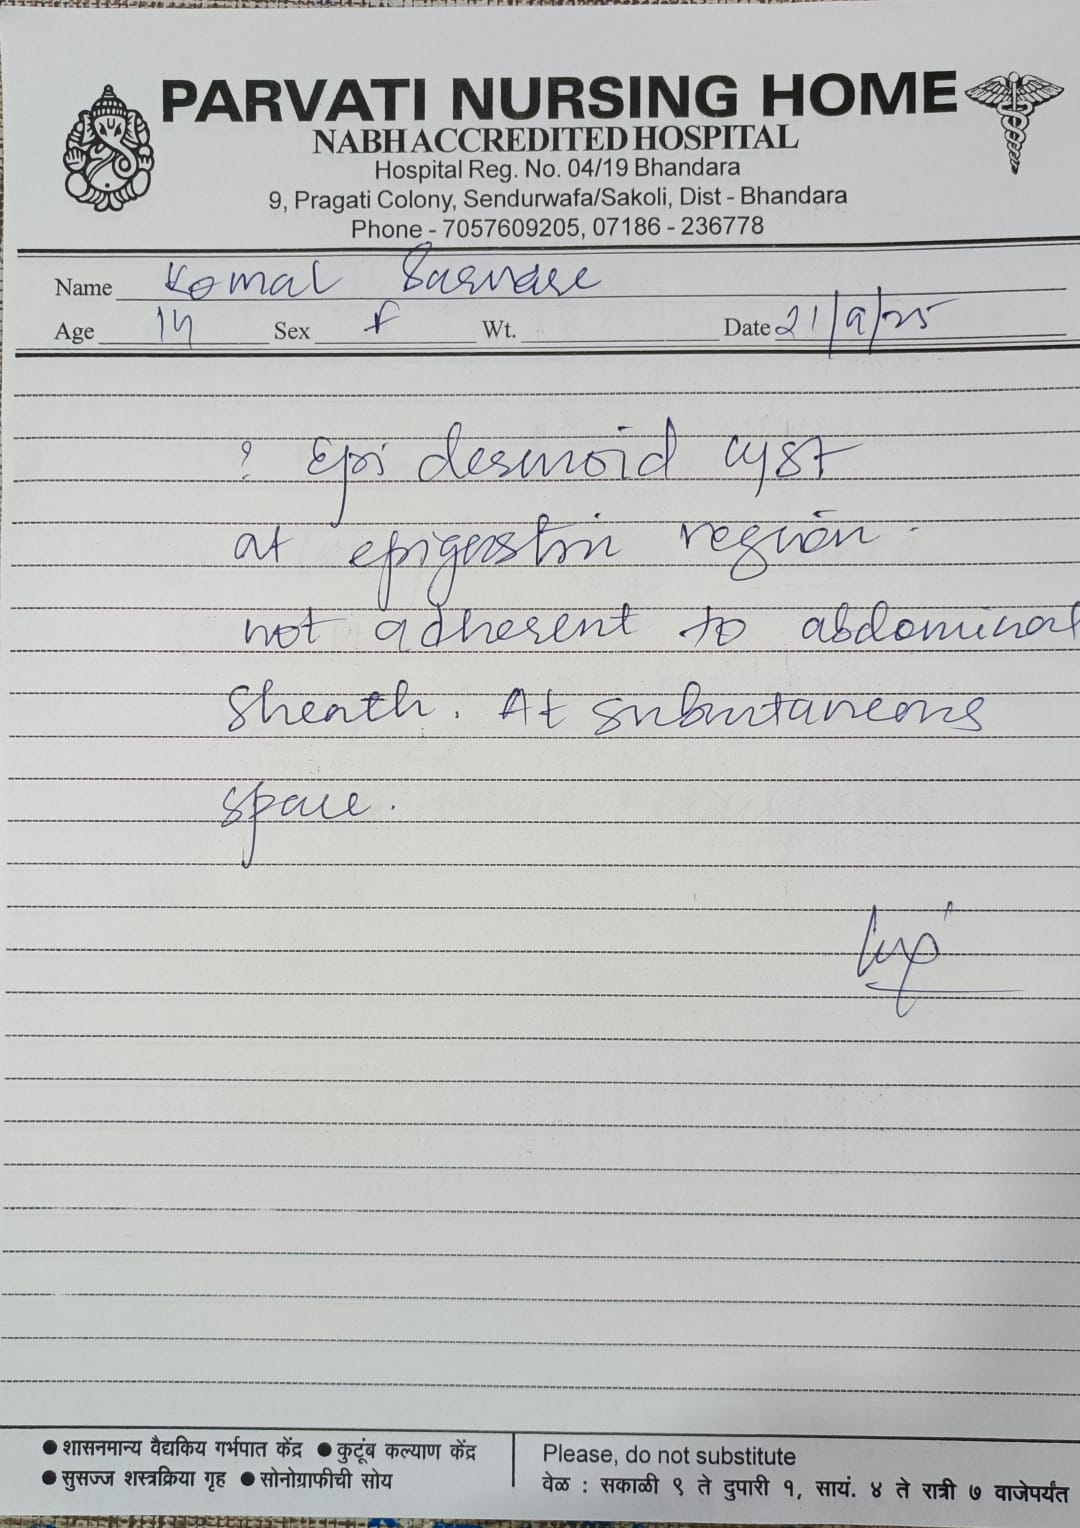 PARVATI NURSING HOME
NABH ACCREDITED HOSPITAL
Hospital Reg. No. 04/19 Bhandara
9, Pragati Colony, Sendurwafa/Sakoli, Dist - Bhandara
Phone - 7057609205, 07186 - 236778
Name Komal
Age 14 Sex F Wt. Date 21/9/25
? Epi desmoid cyst
at epigastric region.
not adherent to abdominal
sheath. At subcutaneous
space.
● शासनमान्य वैद्यकिय गर्भपात केंद्र ● कुटूंब कल्याण केंद्र
● सुसज्ज शस्त्रक्रिया गृह ● सोनोग्राफीची सोय
Please, do not substitute
वेळ : सकाळी ९ ते दुपारी १, सायं. ४ ते रात्री ७ वाजेपर्यंत